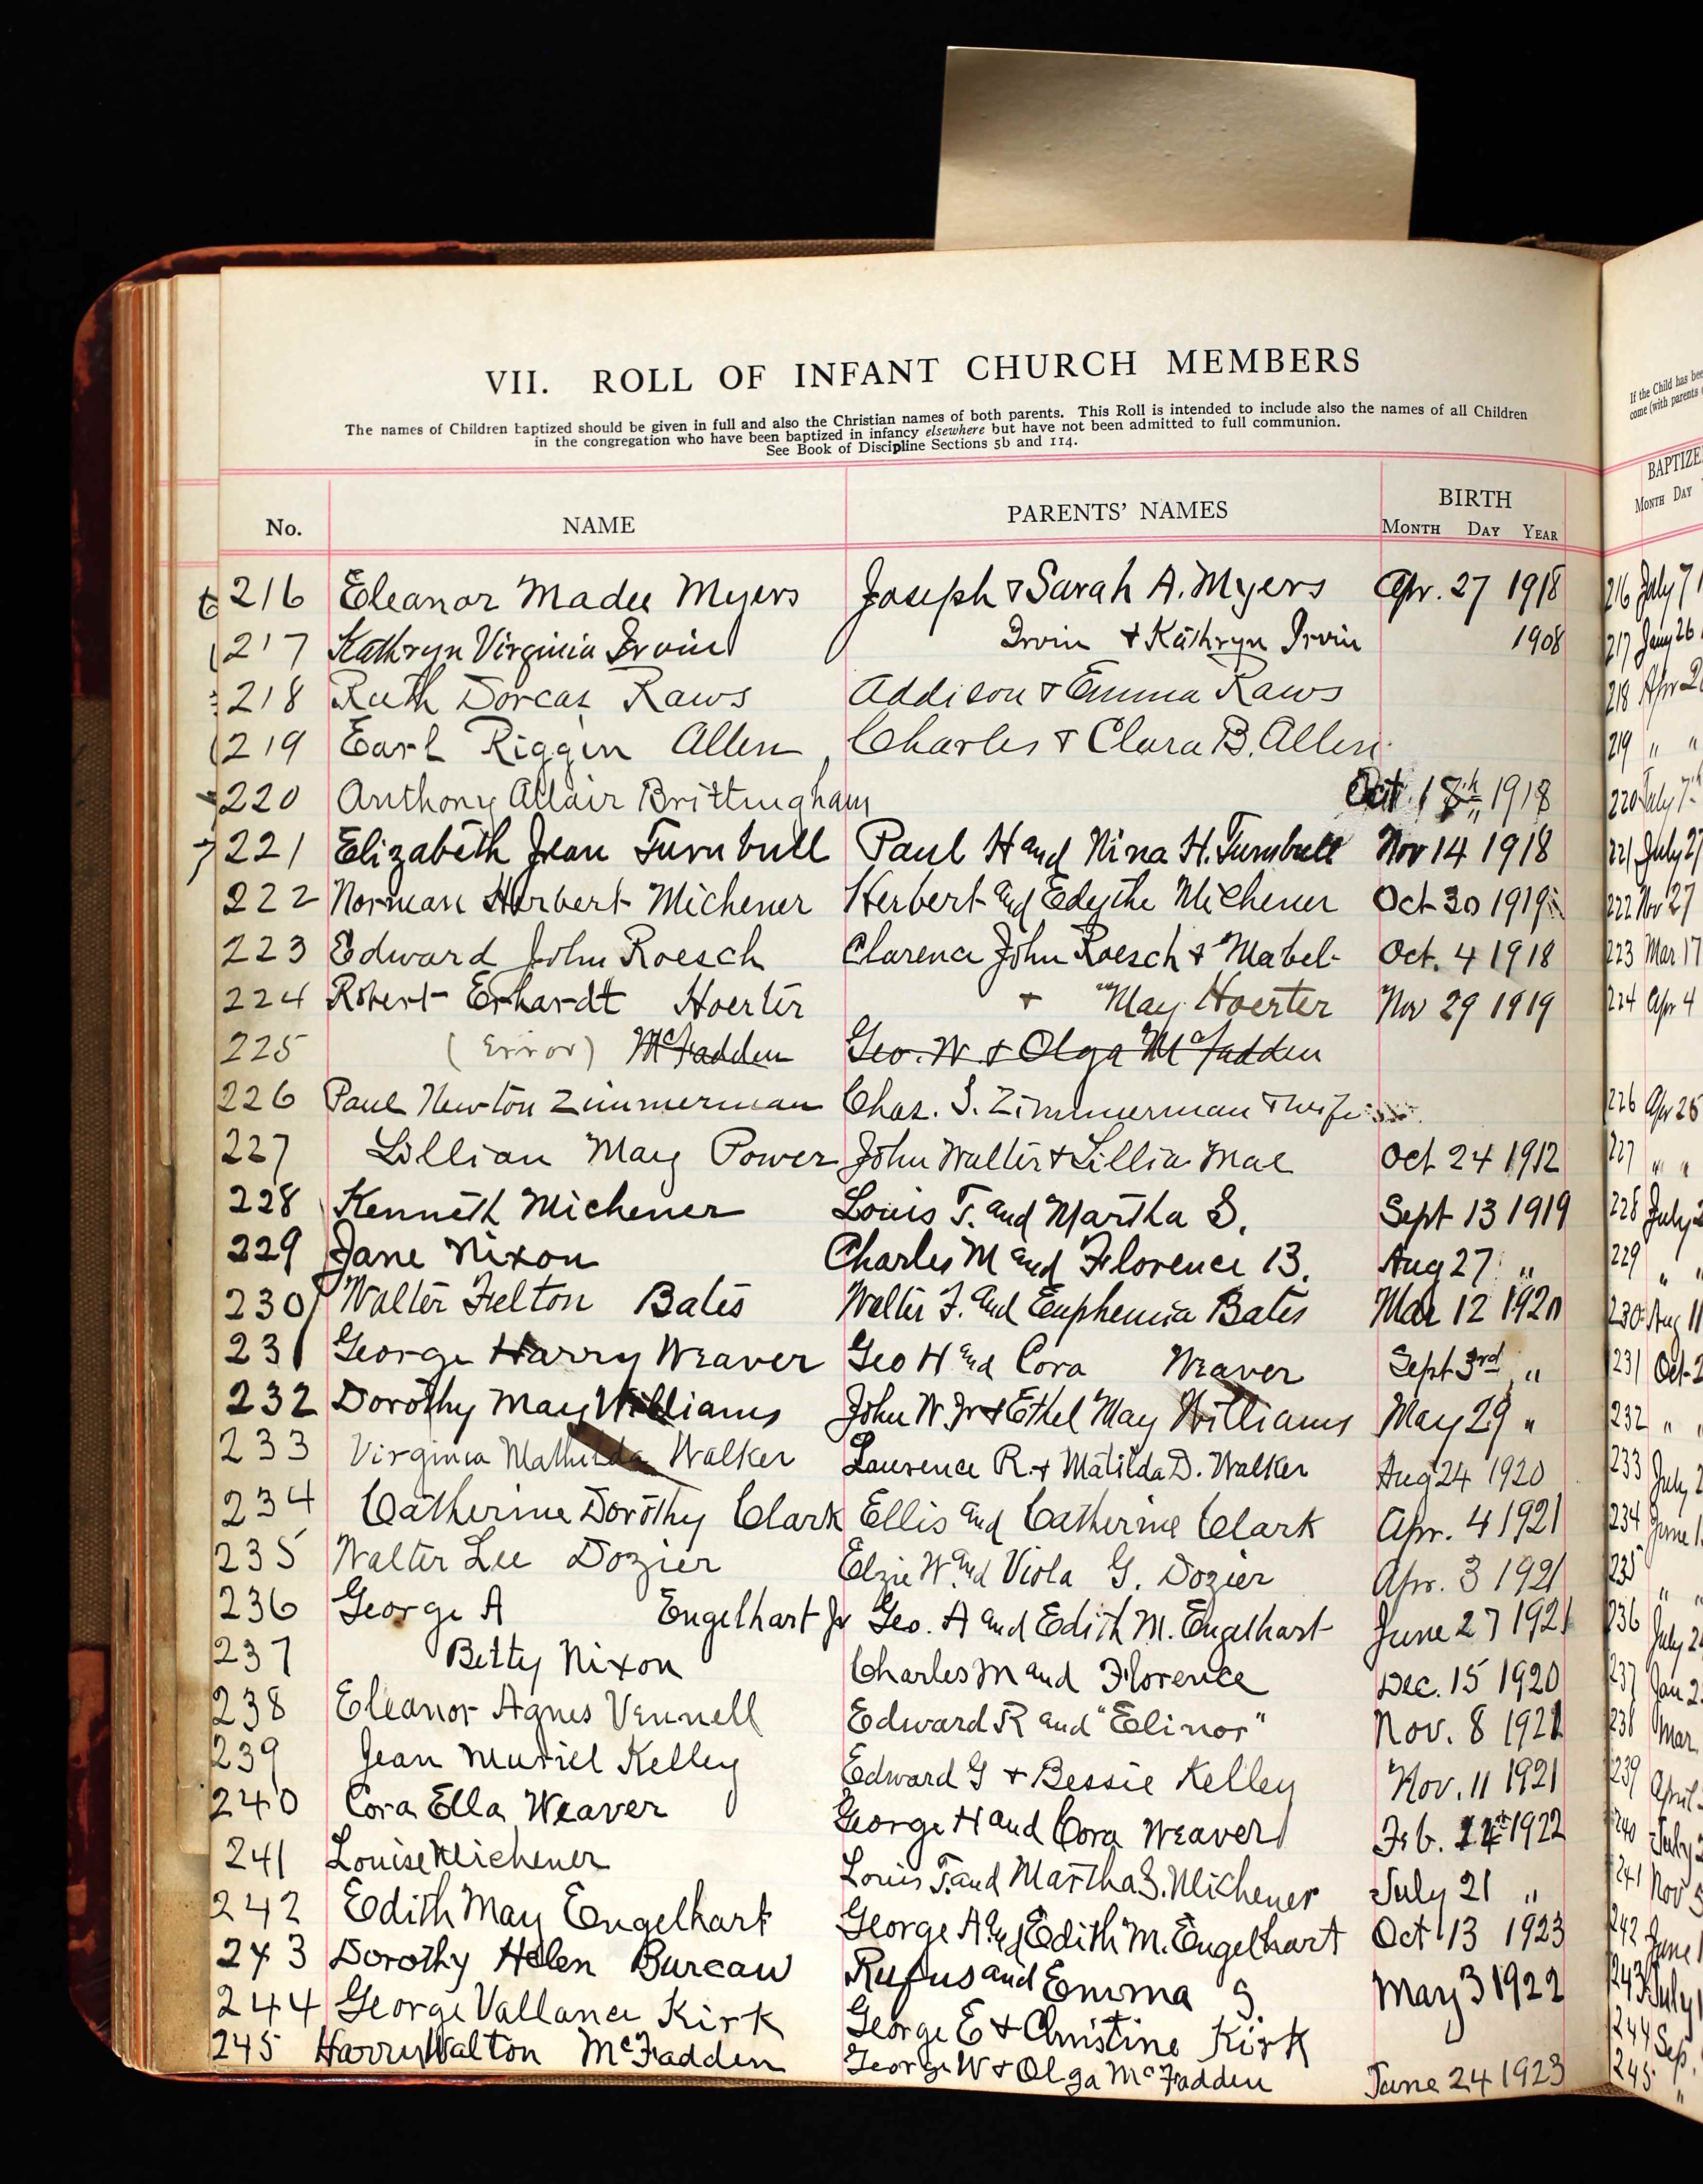 VII. ROLL OF INFANT CHURCH MEMBERS
The names of Children baptized should be given in full and also the Christian names of both parents. This Roll is intended to include also the names of all Children
in the congregation who have been baptized in infancy elsewhere but have not been admitted to full communion.
See Book of Discipline Sections 5b and 114.
If the Child has bee
come (with parents
No. NAME PARENTS' NAMES BIRTH BAPTIZE
MONTH DAY YEAR MONTH DAY
216 Eleanor Madee Myers Joseph & Sarah A. Myers Apr. 27 1918 216 July 7
217 Kathryn Virginia Irvin Irvin & Kathryn Irvin 1908 217 Jany 26
218 Ruth Dorcas Raws Addison & Emma Raws 218 Apr 2
219 Earl Riggin Allen Charles & Clara B. Allen 219 " "
220 Anthony Allair Brittingham Oct. 18th 1918 220 July 7th
221 Elizabeth Jean Turnbull Paul H and Nina H. Turnbull Nov 14 1918 221 July 27
222 Norman Herbert Michener Herbert and Edythe Michener Oct 30 1919 222 Nov 27
223 Edward John Roesch Clarence John Roesch & "Mabel- Oct. 4 1918 223 Mar 17
224 Robert Erhardt Hoerter & "May Hoerter Nov 29 1919 224 Apr 4
225 (Error) McFadden Geo. W & Olga McFadden
226 Paul Newton Zimmerman Chas. S. Zimmerman & wife 226 Apr 25
227 Lillian May Power John Walter & Lillia Mae Oct 24 1912 227 " "
228 Kenneth Michener Louis T. and Martha S. Sept 13 1919 228 July 2
229 Jane Nixon Charles M and Florence B. Aug 27 " 229 " "
230 Walter Felton Bates Walter F. and Euphemia Bates Mar 12 1920 230 Aug 11
231 George Harry Weaver Geo H and Cora Weaver Sept 3rd " 231 Oct 2
232 Dorothy May Williams John W Jr & Ethel May Williams May 29 " 232 " "
233 Virginia Mathilda Walker Laurence R. & Matilda D. Walker Aug 24 1920 233 July 2
234 Catherine Dorothy Clark Ellis and Catherine Clark Apr. 4 1921 234 June 1
235 Walter Lee Dozier Elzie W. and Viola G. Dozier Apr. 3 1921 235 " "
236 George A Engelhart Jr Geo. A and Edith M. Engelhart June 27 1921 236 July 2
237 Betty Nixon Charles M and Florence Dec. 15 1920 237 Jan 2
238 Eleanor Agnes Vennell Edward R and "Elinor" Nov. 8 1921 238 Mar.
239 Jean Muriel Kelley Edward G & Bessie Kelley Nov. 11 1921 239 April
240 Cora Ella Weaver George H and Cora Weaver Feb. 1922 240 July 2
241 Louise Michener Louis T. and Martha S. Michener July 21 " 241 Nov 5
242 Edith May Engelhart George A. and Edith M. Engelhart Oct 13 1923 242 June 1
243 Dorothy Helen Bureaw Rufus and Emma G. May 3 1922 243 July 1
244 George Vallance Kirk George E & Christine Kirk 244 Sep.
245 Harry Walton McFadden George W & Olga McFadden June 24 1923 245 "